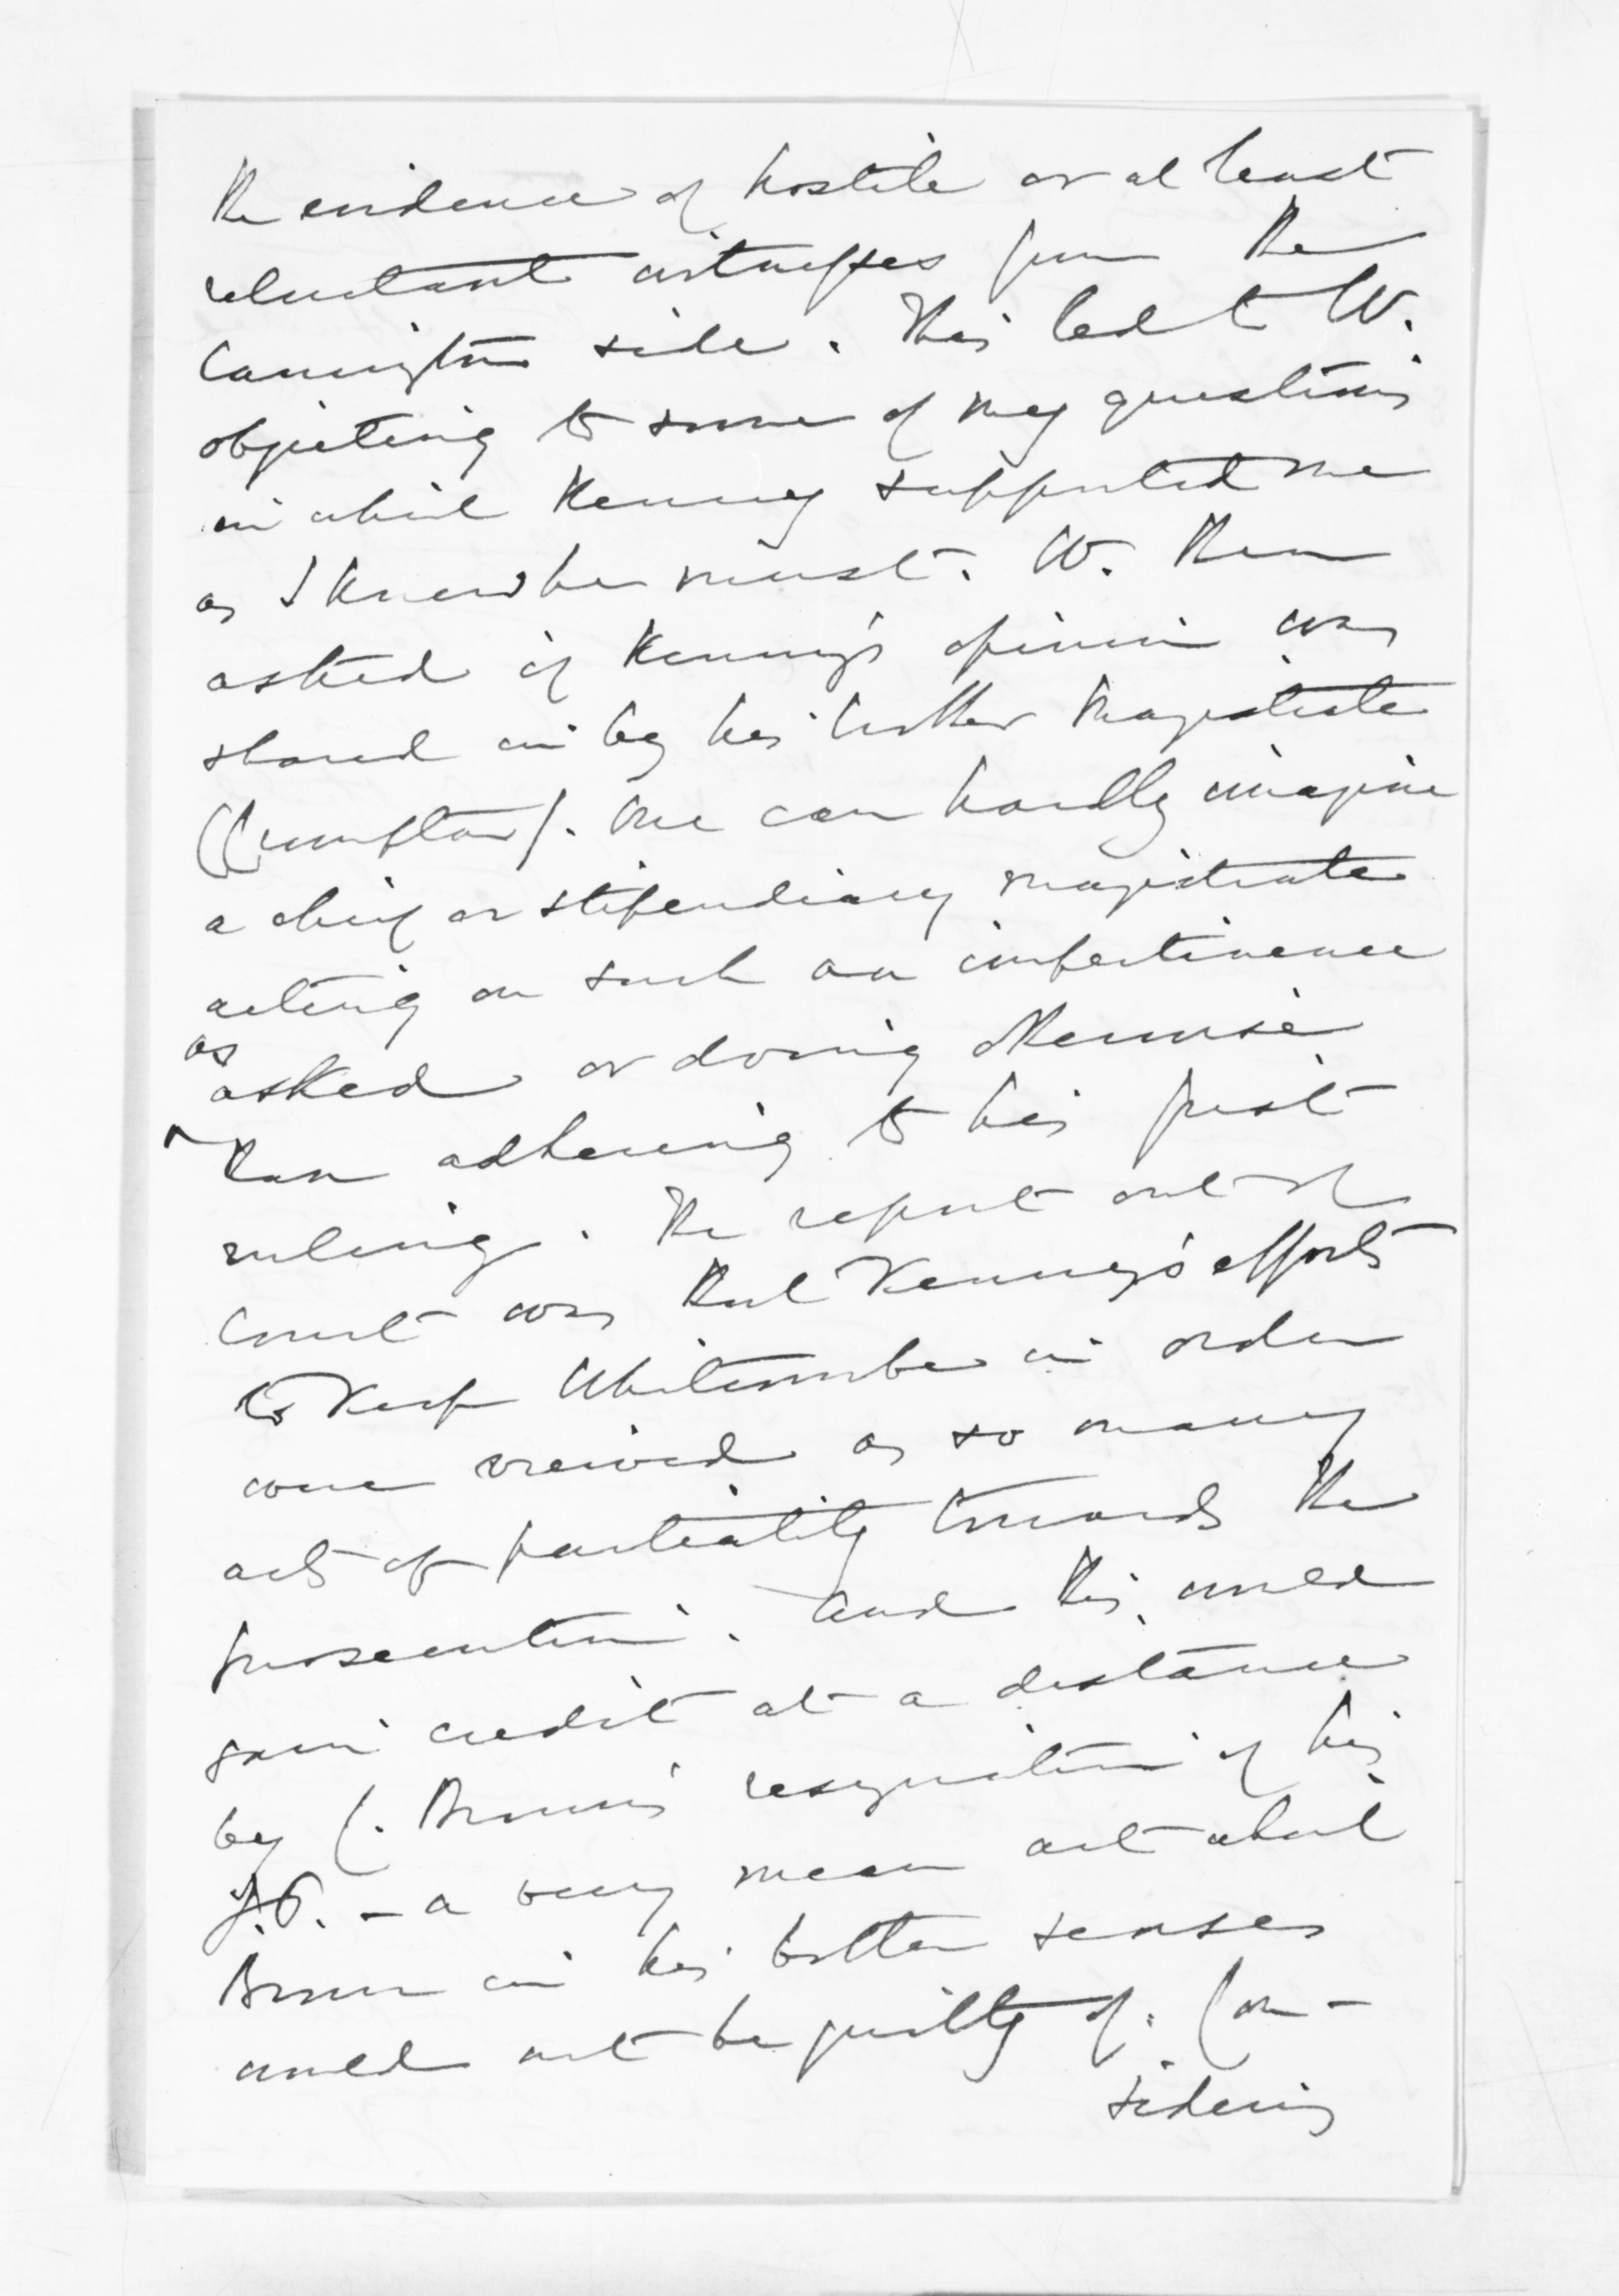 the evidence of hostile or at least
reluctant witnesses from the
Carrington side. This led to W.
objecting to some of my questions
in which Kenny supported me
as I knew he must. W. then
asked if Kenny's opinion was
shared in by his brother Magistrate
(Crompton). One can hardly imagine
a chief or stipendiary magistrate
acting on such an impertinence
as
asked or doing otherwise
than adhering to his first
ruling. The report out of
Court was that Kenny's efforts
to keep Whitcombe in order
were viewed as so many
acts of partiality towards the
prosecution. And this would
gain credit at a distance
by C. Brown's resignation of his
J.P. – a very mean act which
Brown in his better senses
would not be guilty of. Con-
sidering